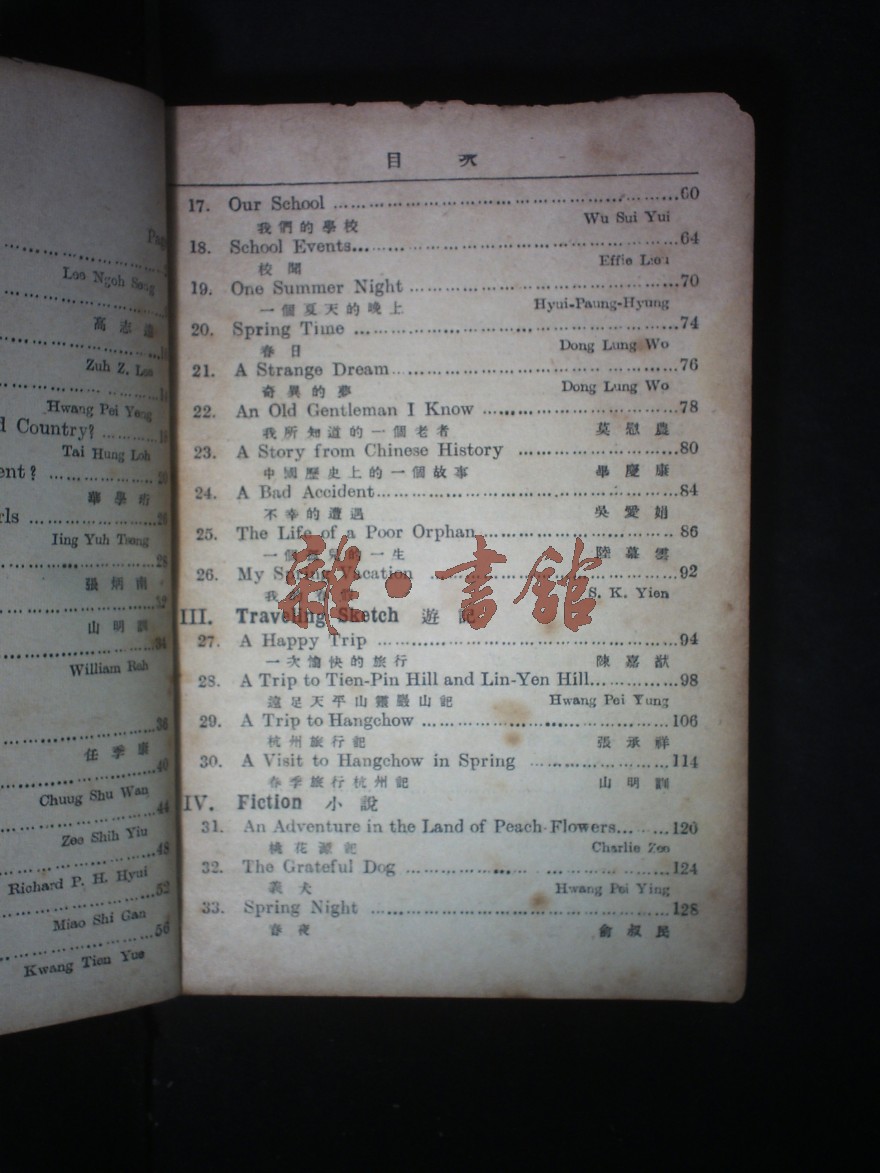 Page
Loo Ngoh Seng
高志
Zuh Z. Loo
Hwang Pei Yong
d Country? ..........18
Tai Hung Loh
ent? ..................20
華學
rls ......................26
Iing Yuh Tsong
28
張炳南
32
山明
34
William Roh
36
任季康
40
Chuug Shu Wan
44
Zee Shih Yiu
48
Richard P. H. Hyui
52
Miao Shi Gan
56
Kwang Tien Yue
目 次
17. Our School ............60
我們的學校 Wu Sui Yui
18. School Events............64
校聞 Effie
19. One Summer Night ............70
一個夏天的晚上 Hyui-Paung-Hyung
20. Spring Time ............74
春日 Dong Lung Wo
21. A Strange Dream............76
奇異的夢 Dong Lung Wo
22. An Old Gentleman I Know ............78
我所知道的一個老者 莫慰農
23. A Story from Chinese History ............80
中國歷史上的一個故事 畢慶康
24. A Bad Accident............84
不幸的遭遇 吳愛娟
25. The Life of a Poor Orphan............86
一個孤兒的一生 陸慕雲
26. My Spring Vacation ............92
我 S. K. Yien
III. Traveling Sketch 遊記
27. A Happy Trip ............94
一次愉快的旅行 陳嘉猷
28. A Trip to Tien-Pin Hill and Lin-Yen Hill............98
遠足天平山靈巖山記 Hwang Pei Yung
29. A Trip to Hangchow ............106
杭州旅行記 張承祥
30. A Visit to Hangchow in Spring ............114
春季旅行杭州記 山明
IV. Fiction 小說
31. An Adventure in the Land of Peach-Flowers............120
桃花源記 Charlie Zee
32. The Grateful Dog ............124
義犬 Hwang Pei Ying
33. Spring Night ............128
春夜 俞叔民
雜·書館